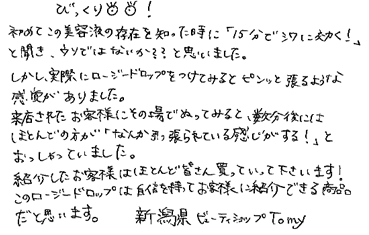 びっくり!
初めてこの美容液の存在を知った時に「15分でシワに効く!」
と聞き、ウソではないか??と思いました。
しかし、実際にロージードロップをつけてみるとピンッと張るような
感覚がありました。
来店されたお客様にその場でぬってみると、数分後には
ほとんどの方が「なんか引っ張られている感じがする!」と
おっしゃっていました。
紹介したお客様はほとんど皆さん買っていって下さいます!
このロージードロップは自信を持ってお客様に紹介できる商品
だと思います。 新潟県 ビューティショップTomy